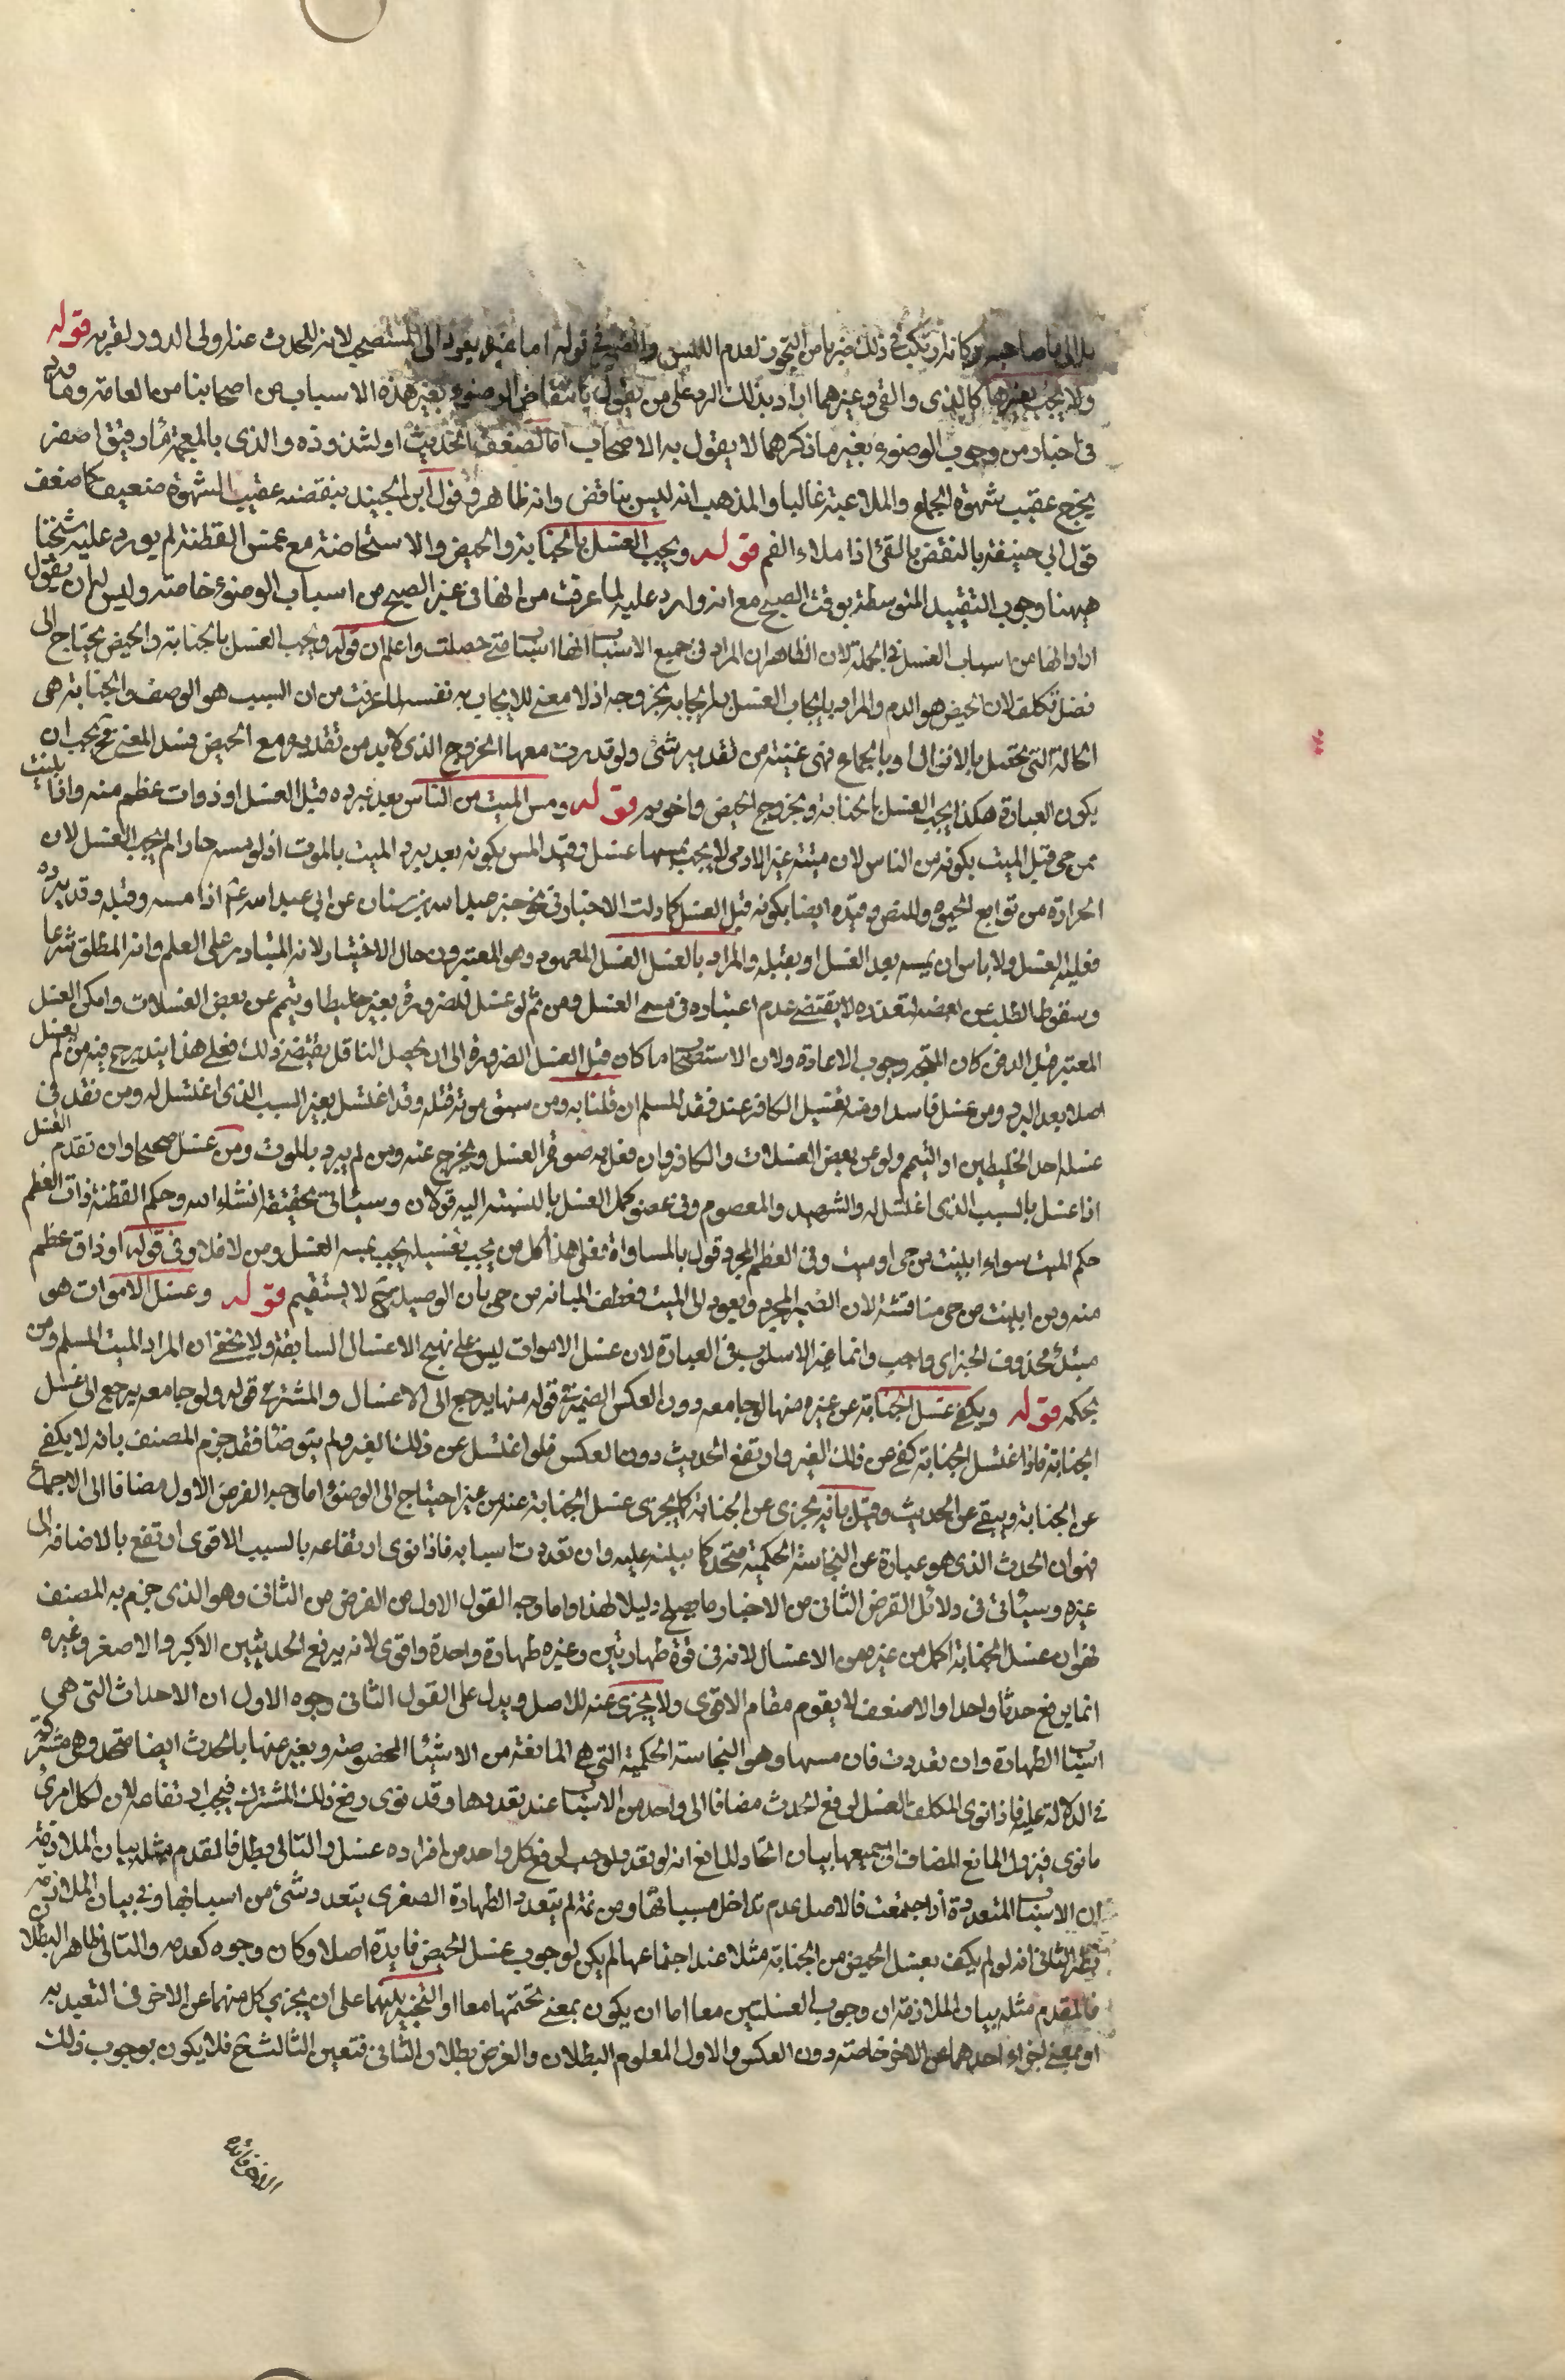 بل الى ما صاحبه وكانه ارتكب في ذلك ضربا من التجوز لعدم اللبس والضمير في قوله اما غيره يعود الى المستصحب لانه للحدث عند اولى الدور لقربه قوله
ولا يجب بغيرها كالمذى والقى وغيرهما اراد بذلك الرد على من يقول بانتقاض الوضوء بغير هذه الاسباب من اصحابنا من العامة وما ورد
فى اخبار من وجوب الوضوء بغير ما ذكر هما لا يقول به الاصحاب اما لضعف الحديث او لشذوذه والمذى بالمعجمة ماء رقيق اصفر
يخرج عقيب شهوة الجماع والملاعبة غالبا والمذهب انه ليس بناقض وانه ظاهر وقول ابن الجنيد بنقضه عقيب الشهوة ضعيف كما ضعف
قول ابي حنيفة بالنقض بالقئ اذا ملاء الفم قوله ويجب الغسل بالجنابة والحيض والاستحاضة مع غمس القطنة لم يورد عليه شيخنا
ههنا وجوب التقييد المتوسطة بوقت الصبح مع انه وارد عليه لما عرفت من انها فى غير الصبح من اسباب الوضوء خاصة وليس له ان يقول
اراد انها من اسباب الغسل في الجملة لان الظاهر ان المراد فى جميع الاسباب انها اسباب متى حصلت واعلم ان قوله ويجب الغسل بالجنابة والحيض يحتاج الى
فضل تكلف لان الحيض هو الدم والمراد بايجاب الغسل به ايجابه بخروجه اذ لا معنى للايجاب به نفسه لما عرفت من ان السبب هو الوصف والجنابة هى
الحالة التى تحصل بالانزال او بالجماع فهى غنية من تقدير شئ ولو قدرت معها الخروج الذى لا بد من تقديره مع الحيض فسد المعنى فح يجب ان
يكون العبارة هكذا يجب الغسل بالجنابة وبخروج الحيض واخويه قوله ومس الميت من الناس بعد برده قبل الغسل او ذات عظم منه وان ابينت
من حى قيد الميت بكونه من الناس لان ميتة غير الادمى لا يجب بمسها غسل وقيد المس بكونه بعد برد الميت بالموت اذ لو مسه حارا لم يجب الغسل لان
الحرارة من توابع الحيوة وللنص وقيده ايضا بكونه قبل الغسل كما دلت الاخبار في نحو خبر عبد الله بن سنان عن ابي عبد الله ع اذا مسه وقبله وقد برد
فعليه الغسل ولا باس ان يمسه بعد الغسل او يقبله والمراد بالغسل الغسل المعهود وهو المعتبر فى حال الاختيار لانه المتبادر على العلم وانه المطلق شرعا
وسقوط الطلب عن بعضه لتعذره لا يقتضى عدم اعتباره فى مسمى الغسل ومن ثم لو غسل للضرورة بغير خليط او يتمم عن بعض الغسلات وامكن الغسل
المعتبر قبل الدفن كان المتجه وجوب الاعادة ولان الاستصحاب ما كان قبل الغسل الضرورة الى ان يحصل الناقل يقتضى ذلك فعلى هذا يندرج فيه من لم يغسل
اصلا بعد البرد ومن غسل فاسدا ومنه تغسيل الكافر عند فقد المسلم ان قلنا به ومن سبق موته قتله وقد اغتسل بغير السبب الذى اغتسل له ومن فقد فى
غسله احد الخليطين او التيمم ولو عن بعض الغسلات والكافر وان فعل به صورة الغسل ويخرج عنه ومن لم يبرد بالموت ومن غسل صحيحا وان تقدم الغسل
اذا غسل بالسبب الذى اغتسل له والشهيد والمعصوم وفى عضو كمل الغسل بالنسبة اليه قولان وسياتى تحقيقه انشاء الله وحكم القطعة ذات العظم
حكم الميت سواء ابينت من حى او ميت وفى العظم المجرد قول بالمساواة فعلى هذا كل من يجب تغسيله يجب بمسه الغسل ومن لا فلا وفى قوله او ذات عظم
منه وان ابينت من حى مناقشة لان الضمير المجرور يعود الى الميت فعطف المبانة من حى بان الوصلية ح لا يستقيم قوله وغسل الاموات هو
مبتدأ محذوف الخبر اى واجب وانما غير الاسلوب فى العبارة لان غسل الاموات ليس على نهج الاغسال السابقة ولا يخفى ان المراد الميت المسلم ومن
بحكمه قوله ويكفى غسل الجنابة عن غيره منها لو جامعه دون العكس الضمير في قوله منها يرجع الى الاغسال والمستتر في قوله ولو جامعه يرجع الى غسل
الجنابة فاذا اغتسل الجنابة كفى عن ذلك الغير وارتفع الحدث دون العكس فلو اغتسل عن ذلك الغير ولم يتوضا فقد جزم المصنف بانه لا يكفى
عن الجنابة ويبقى عن الحدث وقيل بانه يجزى عن الجنابة كما يجزى غسل الجنابة عنه من غير احتياج الى الوضوء اما وجه الفرض الاول مضافا الى الاجماع
فهو ان الحدث الذى هو عبارة عن النجاسة الحكمية متحد كما نبه عليه وان تعددت اسبابه فاذا نوى ارتفاعه بالسبب الاقوى ارتفع بالاضافة الى
غيره وسياتى فى دلائل الفرض الثانى من الاخبار ما يصلح دليلا لهذا واما وجه القول الاول من الفرض من الثانى وهو الذى جزم به المصنف
فهو ان غسل الجنابة اكمل من غيره من الاغسال لانه فى قوة طهارتين وغيره طهارة واحدة واقوى لانه يرفع الحدثين الاكبر والاصغر وغيره
انما يرفع حدثا واحدا والاضعف لا يقوم مقام الاقوى ولا يجزى عنه للاصل ويدل على القول الثانى وجوه الاول ان الاحداث التى هى
اسباب الطهارة وان تعددت فان مسبها وهو النجاسة الحكمية التى هى المانعة من الاشياء المخصوصة ويعبر عنها بالحدث ايضا متحد وهى مشتركة
في الدلالة عليه فاذا نوى المكلف بالغسل لرفع الحدث مضافا الى واحد من الاسباب عند تعددها وقد نوى رفع ذلك المشترك فيجب ارتفاعه لان لكل امرئ
ما نوى فيزول المانع المضاف الى جميعها بيان اتحاد المانع انه لو تعدد لوجب لرفع كل واحد من افراده غسل والتالى باطل فالمقدم مثله بيان الملازمة
ان الاسباب المتعددة اذا اجتمعت فالاصل عدم تداخل مسبباتها ومن ثم لم يتعدد الطهارة الصغرى بتعدد شئ من اسبابها وفى بيان الملازمة
نظر الثانى انه لو لم يكف بغسل الحيض من الجنابة مثلا عند اجتماعها لم يكن لوجوب غسل الحيض فايدة اصلا وكان وجوده كعدمه والتالى ظاهر البطلان
فالمقدم مثله بيان الملازمة ان وجوب الغسلتين معا اما ان يكون بمعنى تحتمها معا او التخيير بينهما على ان يجزى كل منهما عن الاخر فى التعبد به
او بمعنى اجزاء احدهما عن الاخر خاصة دون العكس والاول المعلوم البطلان والفرض بطلان الثانى فتعين الثالث فح فلا يكون بوجوب ذلك